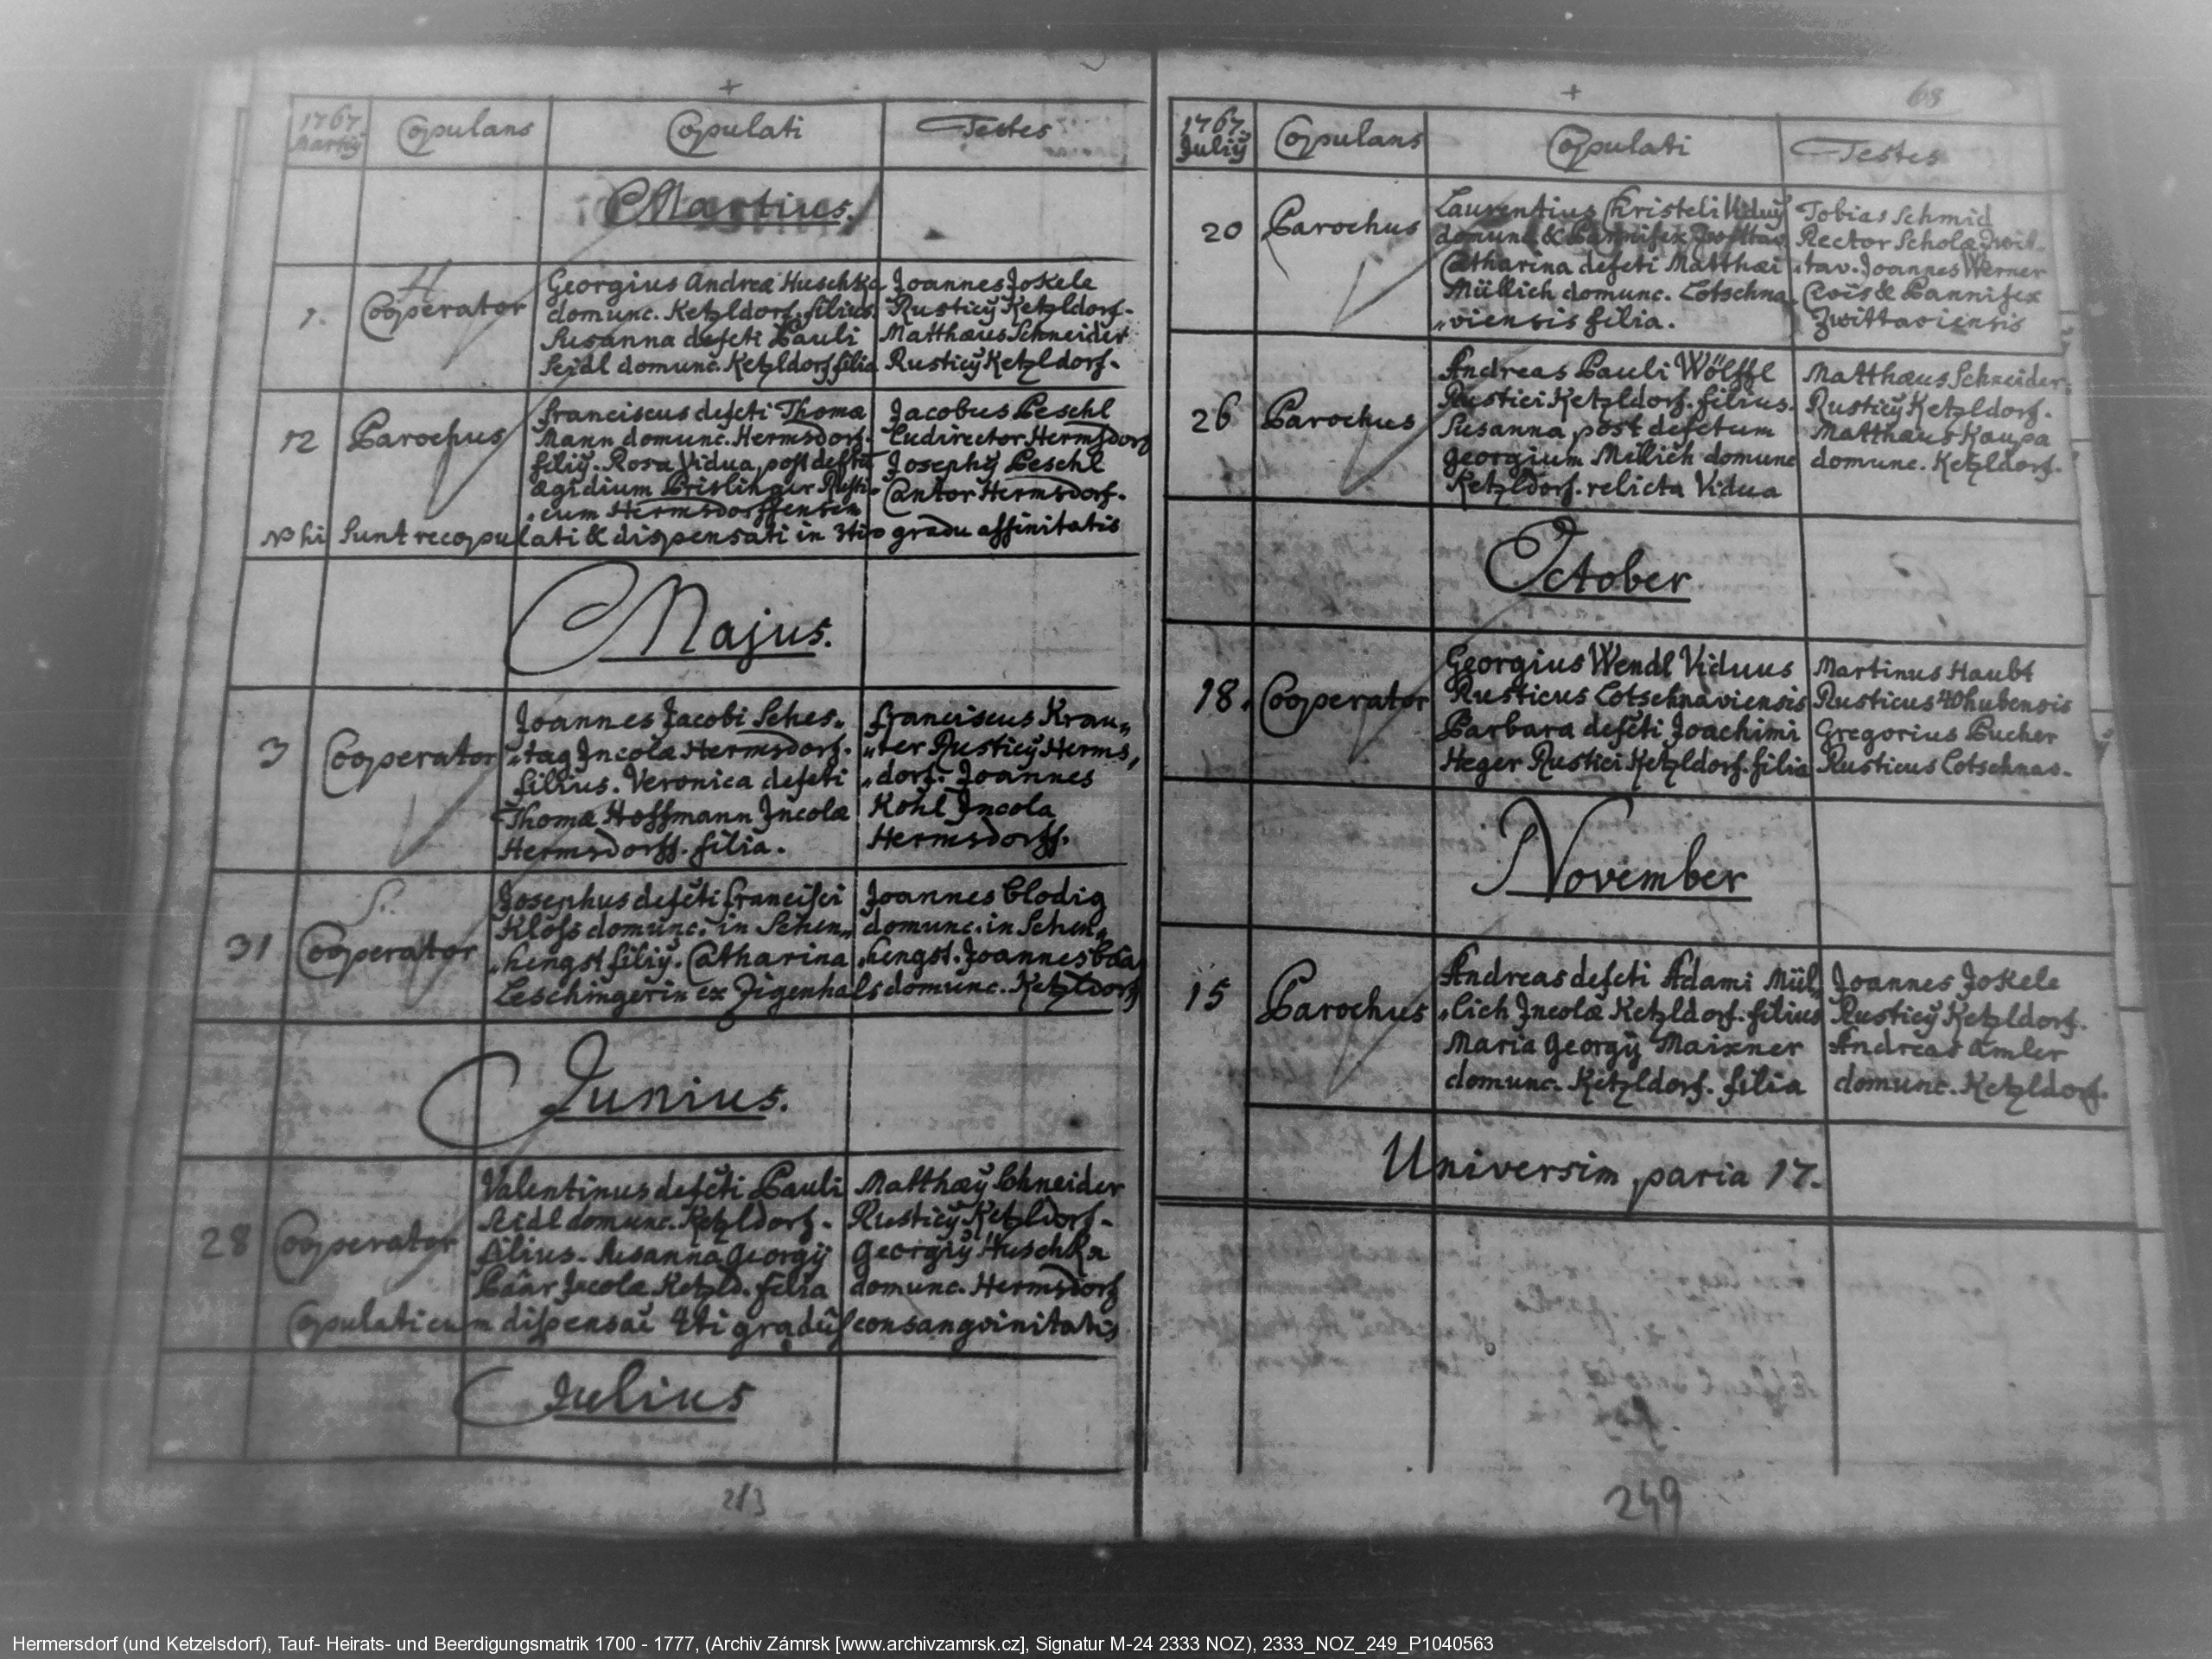 1767. Martij
Copulans
Copulati
Testes
Martius.
1.
Cooperator
Georgius Andreæ Huschka
domunc. Ketzldorf. filius.
Susanna defcti Pauli
Seidl domunc. Ketzldorf filia
Joannes Jokele
Rusticq Ketzldorf.
Matthæus Schneider
Rusticq Ketzldorf.
12
Parochus
Franciscus defcti Thomæ
Mann domunc. Hermsdorf.
filiq. Rosa Vidua post defctū
Ægidium Prislinger Rusti-
cum Hermsdorffensem
Jacobus Peschl
Ludirector Hermsdorf
Josephq Peschl
Cantor Hermsdorf.
NB hi sunt recopulati & dispensati in 3tio gradu affinitatis
Majus.
3
Cooperator
Joannes Jacobi Sches„
„tag Incolæ Hermsdorf.
filius. Veronica defcti
Thomæ Hoffmann Incolæ
Hermsdorff. filia.
Franciscus Krau„
„ter Rusticq Herms„
„dorf. Joannes
Kohl Incola
Hermsdorff.
31
Cooperator
Josephus defcti Francisci
Klofs domunc. in Schen„
„hengst filiq. Catharina
Leschingerin ex Zigenhals
Joannes Clodig
domunc. in Schen„
„hengst. Joannes
domunc. Ketzldorf
Junius.
28
Cooperator
Valentinus defcti Pauli
Seidl domunc. Ketzldorf.
filius. Susanna Georgij
Paar Incolæ Ketzld. filia
Matthæq Schneider
Rusticq Ketzldorf.
Georgiq Huschka
domunc. Hermsdorf
Copulati cum dispensaē 4ti gradūs consangvinitatis
Julius
213
68
1767. Julij
Copulans
Copulati
Testes
20
Parochus
Laurentius Christeli Viduq
domunc. & Pannifex Zwittav
Catharina defcti Matthæi
Müllich domunc. Lotschna„
„viensis filia.
Tobias Schmid
Rector Scholæ Zwit„
„tav. Joannes Werner
Civis & Pannifex
Zwittaviensis
26
Parochus
Andreas Pauli Wölffl
Rustici Ketzldorf. filius.
Susanna post defctum
Georgium Müllich domunc
Ketzldorf. relicta Vidua
Matthæus Schneider
Rusticq Ketzldorf.
Matthæus Kaupa
domunc. Ketzldorf.
October
18.
Cooperator
Georgius Wendl Viduus
Rusticus Lotschnaviensis
Barbara defcti Joachimi
Heger Rustici Ketzldorf. filia
Martinus Haubt
Rusticus 40hubensis
Gregorius Pucher
Rusticus Lotschnav.
November
15
Parochus
Andreas defcti Adami Mül„
„lich Incolæ Ketzldorf. filius
Maria Georgij Maixner
domunc. Ketzldorf. filia
Joannes Jokele
Rusticq Ketzldorf.
Andreas Amler
domunc. Ketzldorf.
Universim paria 17.
249
Hermersdorf (und Ketzelsdorf), Tauf- Heirats- und Beerdigungsmatrik 1700 - 1777, (Archiv Zámrsk [www.archivzamrsk.cz], Signatur M-24 2333 NOZ), 2333_NOZ_249_P1040563